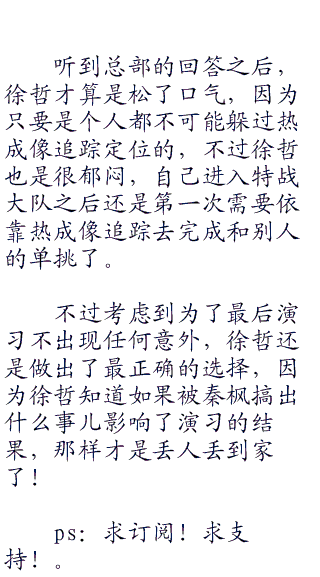 听到总部的回答之后，
徐哲才算是松了口气，因为
只要是个人都不可能躲过热
成像追踪定位的，不过徐哲
也是很郁闷，自己进入特战
大队之后还是第一次需要依
靠热成像追踪去完成和别人
的单挑了。
不过考虑到为了最后演
习不出现任何意外，徐哲还
是做出了最正确的选择，因
为徐哲知道如果被秦枫搞出
什么事儿影响了演习的结
果，那样才是丢人丢到家
了！
ps：求订阅！求支
持！。